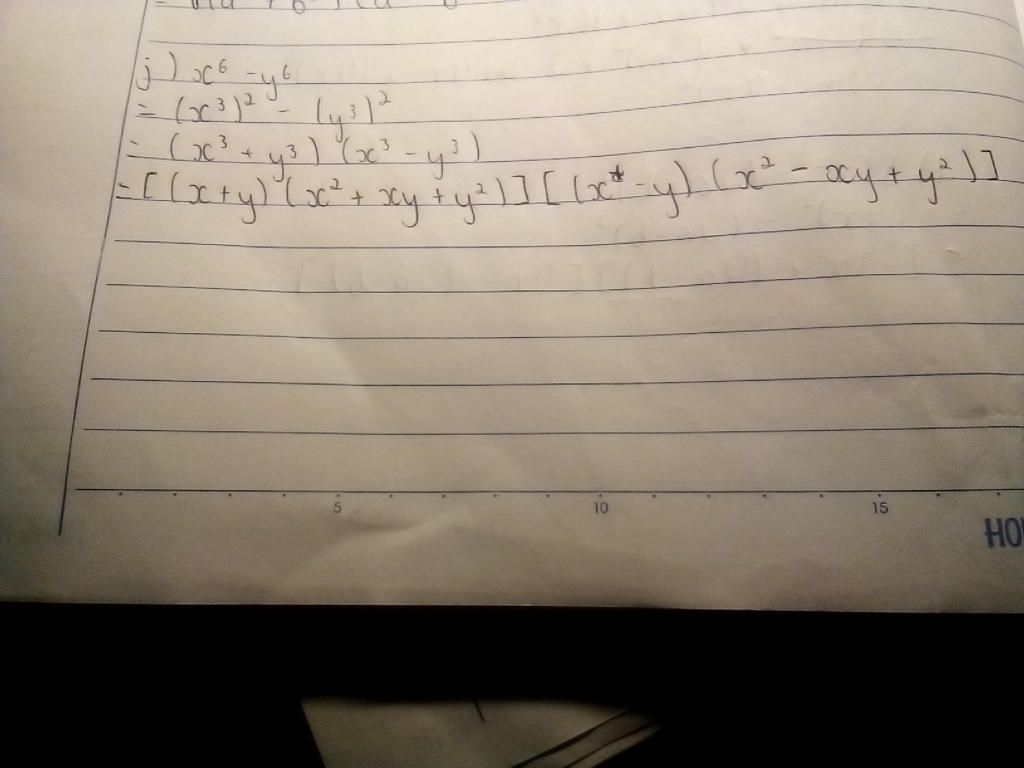 j) x⁶ - y⁶
= (x³)² - (y³)²
= (x³ + y³) (x³ - y³)
= [(x+y) (x² + xy + y²)] [(x - y) (x² - xy + y²)]
5 10 15
HO